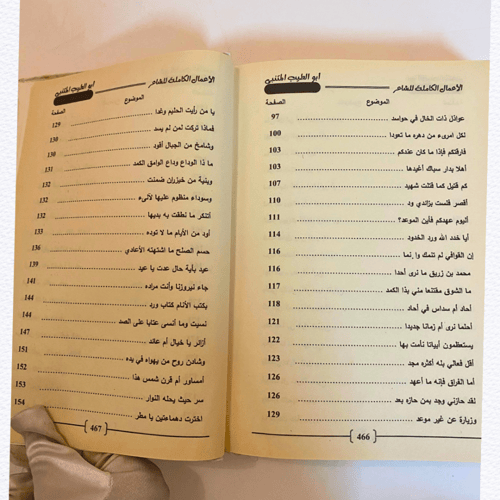 الأعمال الكاملة للشاعر أبو الطيب المتنبي
الموضوع الصفحة
عواذل ذات الخال في حواسد 97
لكل امرىء من دهره ما تعودا 100
فارقتكم فإذا ما كان عندكم 103
أهلا بدار سباك أغيدها 103
كم قتيل كما قتلت شهيد 107
أقصر فلست بزائدي ود 110
اليوم عهدكم فأين الموعد؟ 111
أيا خدد الله ورد الخدود 114
إن القوافي لم تنمك وإنما 116
محمد بن زريق ما نرى أحدا 116
ما الشوق مقتنعا مني بذا الكمد 117
أحاد أم سداس في أحاد 118
أحلما نرى أم زمانا جديدا 121
يستعظمون أبياتا نأمت بها 122
أقل فعالي بله أكثره مجد 123
أما الفراق فإنه ما أعهد 126
لقد حازني وجد بمن حازه بعد 126
وزيارة عن غير موعد 129
466
الأعمال الكاملة للشاعر أبو الطيب المتنبي
الموضوع الصفحة
يا من رأيت الحليم وغدا 129
فماذا تركت لمن لم يسد 130
وشامخ من الجبال أقود 130
ما ذا الوداع وداع الوامق الكمد 131
وبنية من خيزران ضمنت 132
وسوداء منظوم عليها لآلىء 132
أتنكر ما نطقت به بديها 132
أود من الأيام ما لا توده 133
حسم الصلح ما اشتهته الأعادي 136
عيد بأية حال عدت يا عيد 139
جاء نيروزنا وأنت مراده 141
بكتب الأنام كتاب ورد 144
نسيت وما أنسى عتابا على الصد 144
أزائر يا خيال أم عائد 147
وشادن روح من يهواه في يده 151
أمساور أم قرن شمس هذا 152
سر حيث يحله النوار 153
اخترت دهماءتين يا مطر 154
467